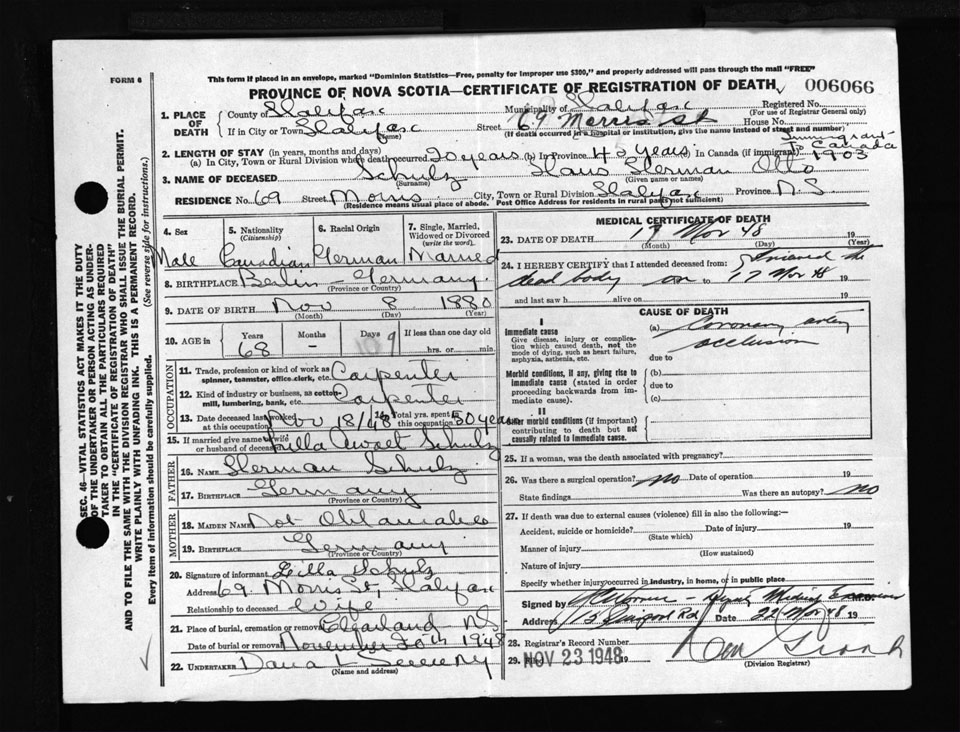 FORM 6
This form if placed in an envelope, marked "Dominion Statistics—Free, penalty for improper use $300," and properly addressed will pass through the mail "FREE"
PROVINCE OF NOVA SCOTIA—CERTIFICATE OF REGISTRATION OF DEATH
006066
1. PLACE OF DEATH
County of Halifax Municipality of Halifax Registered No.
(For use of Registrar General only)
If in City or Town Halifax Street 69 Morris St House No.
(Name) (If death occurred in a hospital or institution, give the name instead of street and number)
2. LENGTH OF STAY (in years, months and days)
Immigrant to Canada
(a) In City, Town or Rural Division where death occurred 20 years (b) In Province 45 years (c) In Canada (if immigrant) 1903
3. NAME OF DECEASED Schulz Hans Herman Otto
(Surname) (Given name or names)
RESIDENCE No. 69 Street Morris City, Town or Rural Division Halifax Province N.S
(Residence means usual place of abode. Post Office Address for residents in rural parts not sufficient)
4. Sex
5. Nationality (Citizenship)
6. Racial Origin
7. Single, Married, Widowed or Divorced (write the word)
Male Canadian German Married
8. BIRTHPLACE Berlin - Germany
(Province or Country)
9. DATE OF BIRTH Nov 8 1880
(Month) (Day) (Year)
10. AGE in Years Months Days If less than one day old
68 - 9 hrs. or min.
OCCUPATION
11. Trade, profession or kind of work as spinner, teamster, office clerk, etc. Carpenter
12. Kind of industry or business, as cotton-mill, lumbering, bank, etc. Carpenter
13. Date deceased last worked at this occupation Nov 18/48
14. Total yrs. spent in this occupation 50 years
15. If married give name of wife or husband of deceased Lilla Schulz
FATHER
16. NAME Herman Schulz
17. BIRTHPLACE Germany
(Province or Country)
MOTHER
18. MAIDEN NAME Not Obtainable
19. BIRTHPLACE Germany
(Province or Country)
20. Signature of informant Lilla Schulz
Address 69 Morris St, Halifax
Relationship to deceased Wife
21. Place of burial, cremation or removal NS
Date of burial or removal November 20th 1948
22. UNDERTAKER Dana L Sweeny
(Name and address)
MEDICAL CERTIFICATE OF DEATH
23. DATE OF DEATH 17 Nov 48
(Month) (Day) (Year)
24. I HEREBY CERTIFY that I attended deceased from: Viewed the
dead body on to 17 Nov 48 19
and last saw h alive on 19
CAUSE OF DEATH
I
Immediate cause
Give disease, injury or complication which caused death, not the mode of dying, such as heart failure, asphyxia, asthenia, etc.
(a) Coronary artery
occlusion
due to
Morbid conditions, if any, giving rise to immediate cause (stated in order proceeding backwards from immediate cause).
(b)
due to
(c)
II
Other morbid conditions (if important) contributing to death but not causally related to immediate cause.
25. If a woman, was the death associated with pregnancy?
26. Was there a surgical operation? No Date of operation 19
State findings Was there an autopsy? No
27. If death was due to external causes (violence) fill in also the following:—
Accident, suicide or homicide? Date of injury 19
(State which)
Manner of injury
(How sustained)
Nature of injury
Specify whether injury occurred in industry, in home, or in public place
Signed by Deputy Medical Examiner M.D.
Address Date 22 Nov 48 19
28. Registrar's Record Number
29. Filed NOV 23 1948 19
(Division Registrar)
SEC. 46—VITAL STATISTICS ACT MAKES IT THE DUTY
OF THE UNDERTAKER OR PERSON ACTING AS UNDER-
TAKER TO OBTAIN ALL THE PARTICULARS REQUIRED
IN THE "CERTIFICATE OF REGISTRATION OF DEATH"
AND TO FILE THE SAME WITH THE DIVISION REGISTRAR WHO SHALL ISSUE THE BURIAL PERMIT.
WRITE PLAINLY WITH UNFADING INK. THIS IS A PERMANENT RECORD.
Every item of information should be carefully supplied. (See reverse side for instructions.)